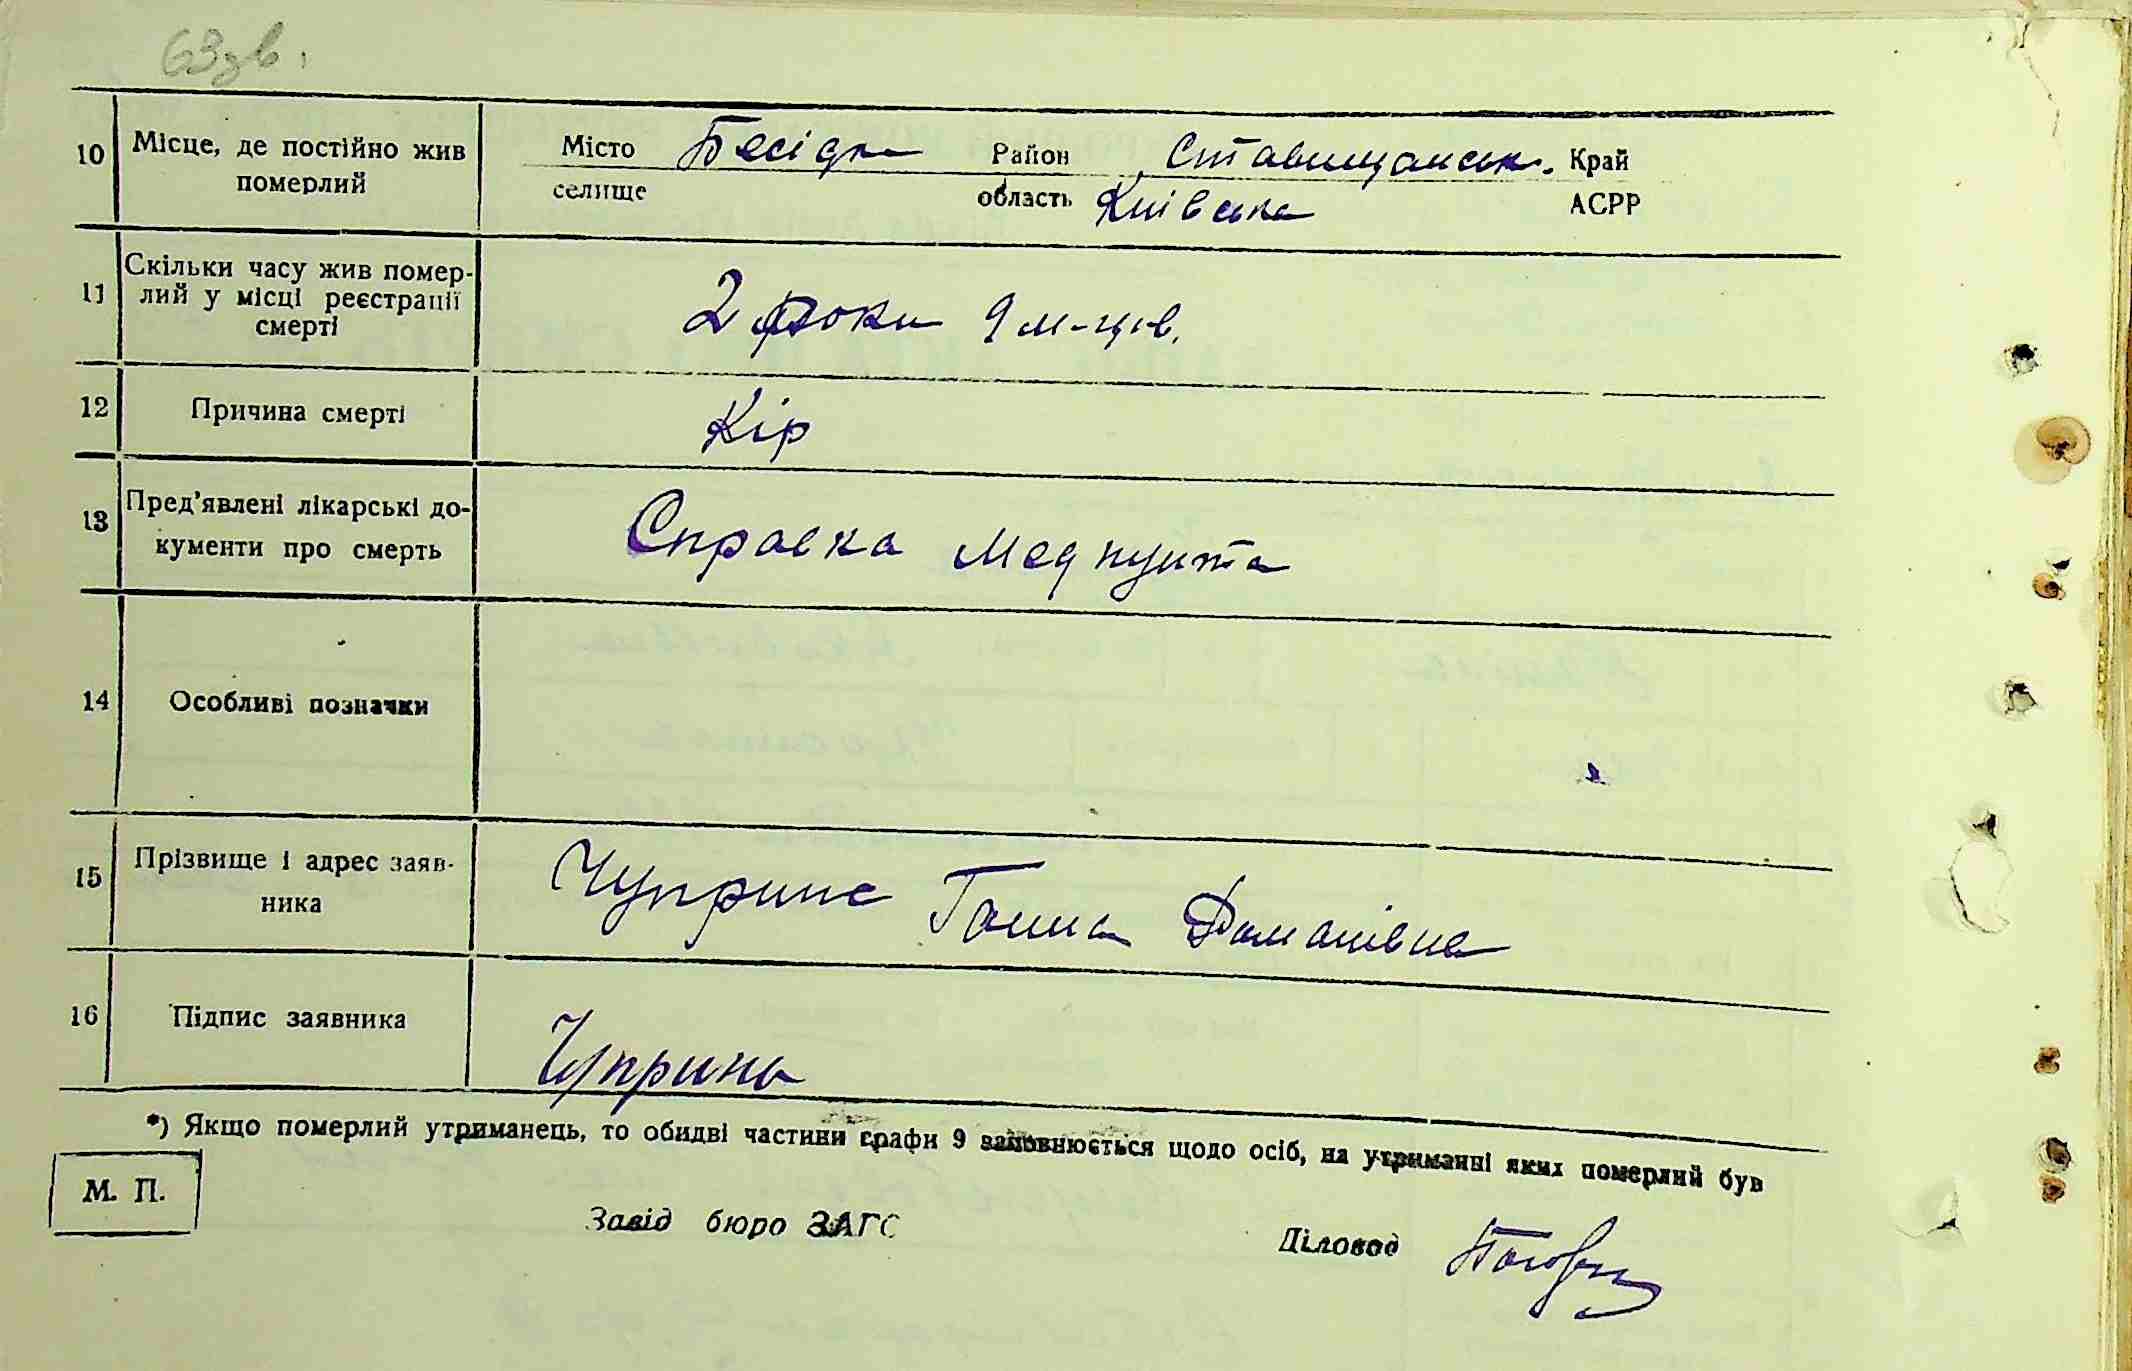 63зв.
10 Місце, де постійно жив померлий Місто Бесідка Район Ставищанськ. Край
селище область Київська АСРР
11 Скільки часу жив помер-
лий у місці реєстрації
смерті 2 роки 9 м-ців.
12 Причина смерті Кір
13 Пред'явлені лікарські до-
кументи про смерть Справка Медпункта
14 Особливі позначки
15 Прізвище і адрес заяв-
ника Чуприна Ганна Доманівна
16 Підпис заявника Чуприна
*) Якщо померлий утриманець, то обидві частини графи 9 заповнюється щодо осіб, на утриманні яких померлий був
М. П.
Завід бюро ЗАГС Діловод